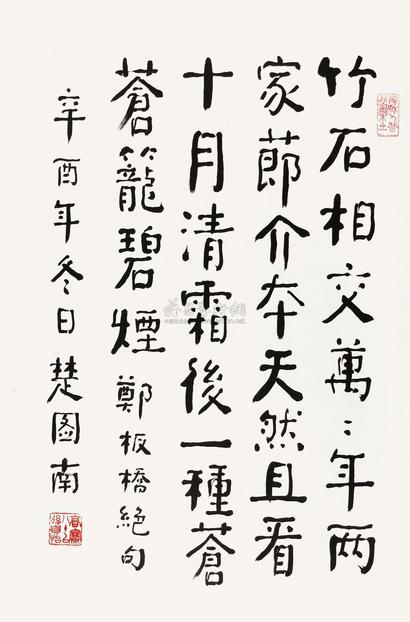 竹石相交萬〻年两
家莭介夲天然且看
十月清霜後一種蒼
蒼籠碧煙 鄭板橋絕句
辛酉年冬日楚图南